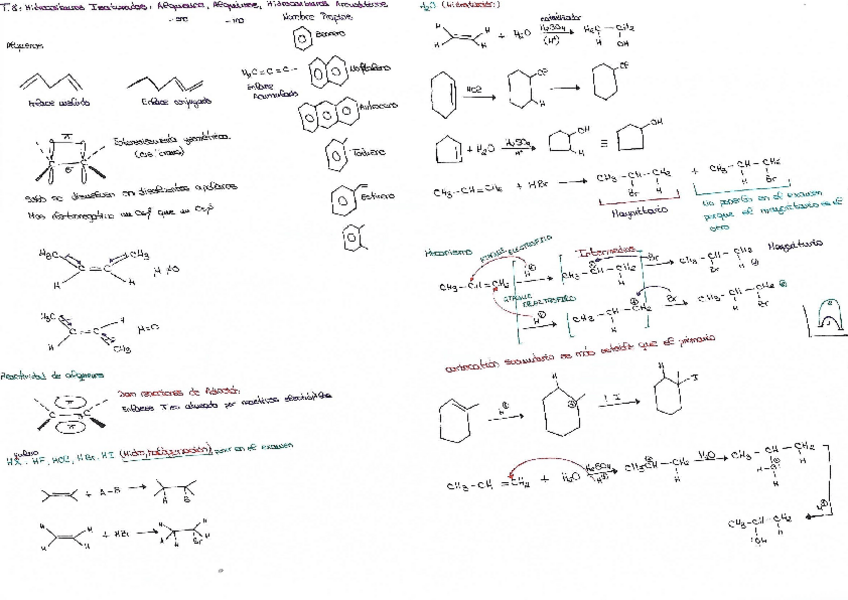 T.8: Hidrocarburos Insaturados: Alquenos, Alquinos, Hidrocarburos Aromáticos
-eno
-ino
Nombre Propio
Benceno
Alquenos
H₂C=C=C
Naftaleno
Enlace aislado
Enlace conjugado
Enlace Acumulado
Antraceno
π
σ
Estereoisomería geométrica
(cis/trans)
Tolueno
Estireno
Solo se disuelven en disolventes apolares
Más electronegativo un Csp² que un Csp³
H₃C
CH₃
C = C
H
H
μ≠0
H₃C
H
C = C
H
CH₃
μ=0
Reactividad de alquenos
Dan reacciones de Adición
Enlace π es atacado por reactivos electrófilos
HX: HF, HCl, HBr, HI (Hidrohalogenación) en el examen
+ A-B →
A B
+ HBr →
H₂O (Hidratación)
catalizador
+ H₂O H₂SO₄ (H⁺) H₂C-CH₂
H OH
HCl
Cl
H
Cl
+ H₂O H₂SO₄ H⁺
OH
H
≡
OH
CH₃-CH=CH₂ + HBr → CH₃-CH-CH₂ + CH₃-CH-CH₂
Br H
H Br
Mayoritario
No ponerlo en el examen
porque el mayoritario es el
otro
Mecanismo
ATAQUE ELECTROFILO
Intermedios
CH₃-CH=CH₂
H⁺
CH₃-CH-CH₂
H
Br
CH₃-CH-CH₂
Br H
Mayoritario
ATAQUE ELECTROFILO
H⁺
CH₃-CH-CH₂
H
Br
CH₃-CH-CH₂
H Br
carbocatión secundario es más estable que el primario
H⁺
H
I
H
I
CH₃-CH=CH₂ + H₂O H₂SO₄ H⁺ CH₃CH-CH₂ H₂O CH₃-CH-CH₂
H
H
H⁺
CH₃-CH-CH₂
OH H